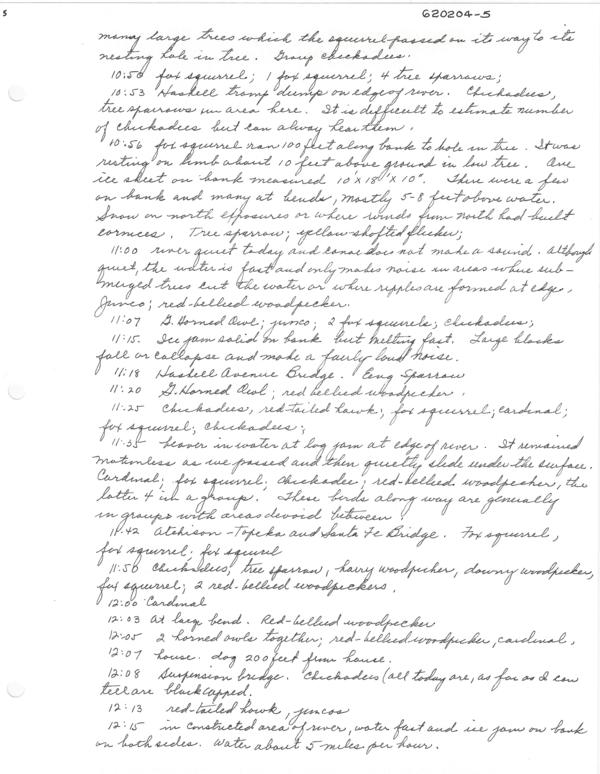 s
620204-5
many large trees which the squirrel passed on its way to its
nesting hole in tree. Group chickadees.
10:50 fox squirrel; 1 fox squirrel; 4 tree sparrows;
10:53 Haskell tramp dump on edge of river. Chickadees,
tree sparrows in area here. It is difficult to estimate number
of chickadees but can alway hear them.
10:56 fox squirrel ran 100 feet along bank to hole in tree. It was
resting on limb about 10 feet above ground in low tree. One
ice sheet on bank measured 10'X18'X10". There were a few
on bank and many at bends, mostly 5-8 feet above water.
Snow on north exposures or where winds from north had built
cornices. Tree sparrow; yellow-shafted flicker;
11:00 river quiet today and canoe does not make a sound. Although
quiet, the water is fast and only makes noise in areas where sub-
merged trees cut the water or where ripples are formed at edge.
Junco; red-bellied woodpecker.
11:07 G. Horned Owl; junco; 2 fox squirrels; chickadees;
11:15. Ice jam solid on bank but melting fast. Large blocks
fall or collapse and make a fairly loud noise.
11:18 Haskell Avenue Bridge. Song Sparrow
11:20 G. Horned Owl; red bellied woodpecker.
11:25 Chickadees, red-tailed hawk; fox squirrel; cardinal;
fox squirrel; chickadees;
11:35 beaver in water at log jam at edge of river. It remained
motionless as we passed and then quietly slide under the surface.
Cardinal; fox squirrel; chickadee; red-bellied woodpecker, the
latter 4 in a group. These birds along way are generally
in groups with areas devoid between.
11:42 Atchison-Topeka and Santa Fe Bridge. Fox squirrel,
fox squirrel; fox squirrel
11:50 Chickadees, tree sparrow, hairy woodpecker, downy woodpecker,
fox squirrel; 2 red-bellied woodpeckers.
12:00 Cardinal
12:03 At large bend. Red-bellied woodpecker
12:05 2 horned owls together; red-bellied woodpecker, cardinal.
12:07 house. dog 200 feet from house.
12:08 Suspension bridge. Chickadees (all today are, as far as I can
tell are blackcapped.
12:13 red-tailed hawk, juncos
12:15 in constructed area of river, water fast and ice jam on bank
on both sides. Water about 5 miles per hour.